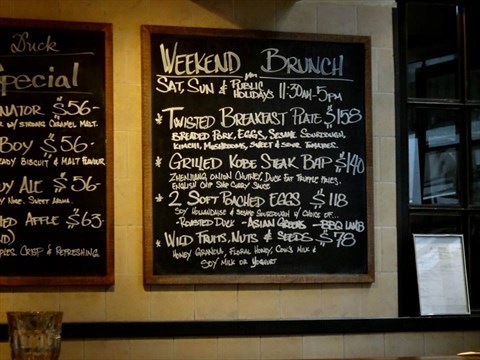 Duck
Special
NATOR $56-
W/ STRONG CARAMEL MALT.
BOY $56-
EADY BISCUIT & MALT FLAVOUR
ALE $56-
NOSE. SWEET
ED APPLE $63
PLES, CRISP & REFRESHING
WEEKEND BRUNCH
SAT, SUN & PUBLIC HOLIDAYS 11:30AM-5PM
* TWISTED BREAKFAST PLATE $158
BREADED PORK, EGGS, SESAME SOURDOUGH,
KIMCHI, MUSHROOMS, SWEET & SOUR TOMATOES.
* GRILLED KOBE STEAK BAP $190
ZHENJIANG ONION CHUTNEY, DUCK FAT TRUFFLE FRIES,
ENGLISH CHIP SHOP CURRY SAUCE
* 2 SOFT POACHED EGGS $118
SOY HOLLANDAISE & SESAME SOURDOUGH W/ CHOICE OF...
-ROASTED DUCK -ASIAN GREENS -BBQ LAMB
* WILD FRUITS, NUTS & SEEDS $78
HONEY GRANOLA, FLORAL HONEY, COW'S MILK &
SOY MILK OR YOGHURT